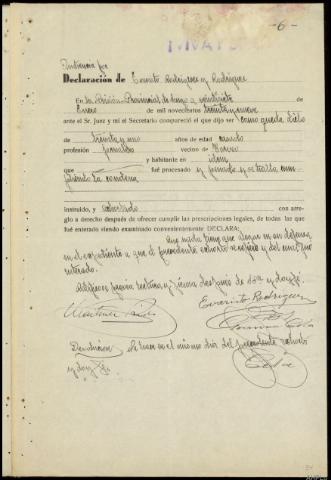 -6-
Declaración de Evaristo Rodriguez y Rodriguez
En la Prisión Provincial de Lugo a veintisiete de
Enero de mil novecientos treinta y nueve
ante el Sr. Juez y mi el Secretario compareció el que dijo ser como queda dicho
de treinta y uno años de edad casado
profesión jornalero vecino de
y habitante en idem
que fué procesado y penado y se halla cum-
pliendo la condena
instruído, y exhortado con arre-
glo a derecho después de ofrecer cumplir las prescripciones legales, de todas las que
fué enterado siendo examinado convenientemente DECLARA:
Que nada tiene que alegar en su defensa
en el expediente a que el precedente exhorto se refiere y del cual fue
enterado.
Así lo dijo leyó se ratifica y firma después de S.Sª y doy fé.
Evaristo Rodriguez
Devolución Se hace en el mismo dia del precedente exhorto
y doy fé.